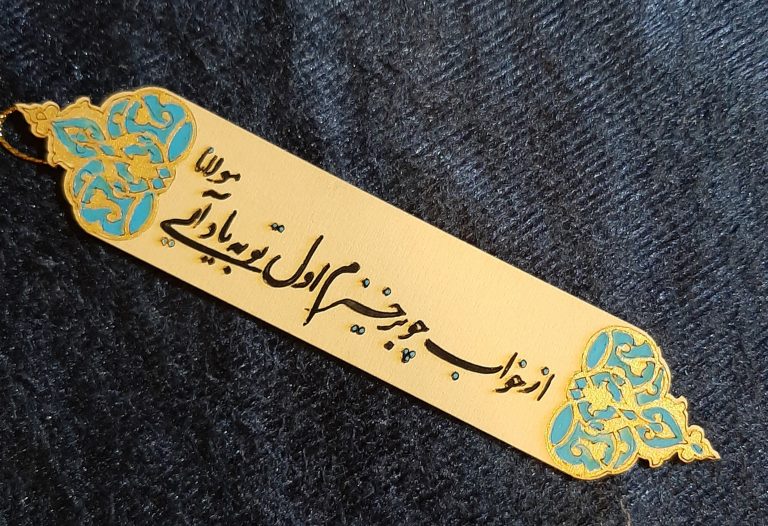 از خواب چو برخیزم اول تو به یاد آیی
مولانا